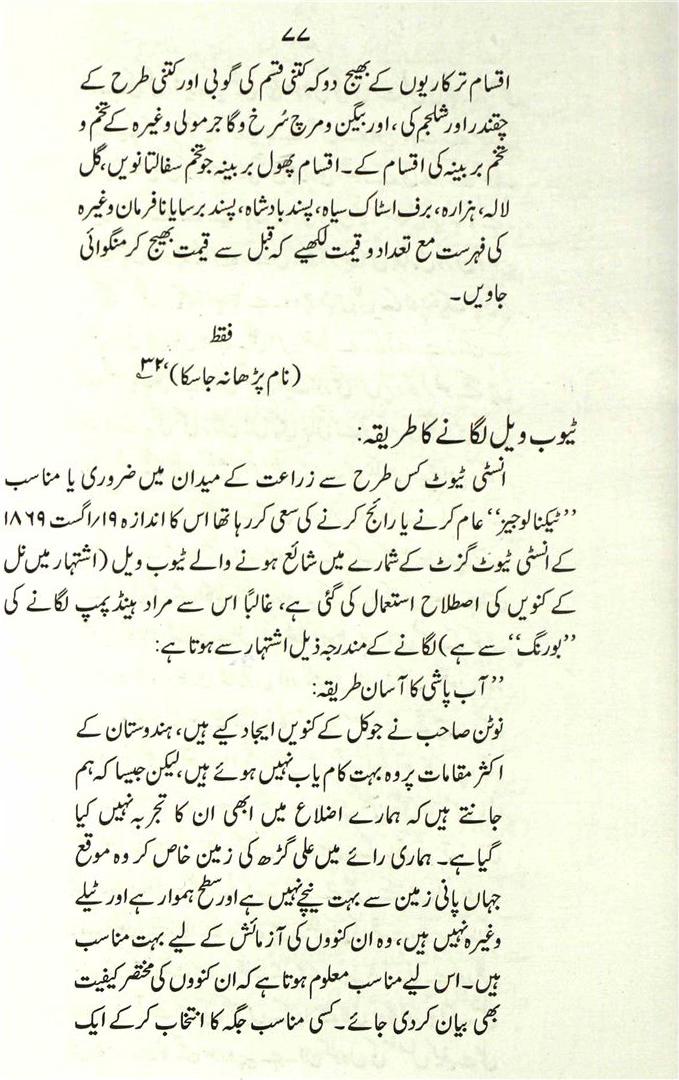 ۷۷
اقسام ترکاریوں کے بھیج دو کہ کتنی قسم کی گوبی اور کتنی طرح کے
چقندر اور شلجم کی، اور بیگن و مرچ سُرخ و گاجر مولی وغیرہ کے تخم و
تخم بربینہ کی اقسام کے۔ اقسام پھول بربینہ جو تخم سفالتا نویں، گل
لالہ، ہزارہ، برف اسٹاک سیاہ، پسند بادشاہ، پسند برسایا نافرمان وغیرہ
کی فہرست مع تعداد و قیمت لکھیے کہ قبل سے قیمت بھیج کر منگوائی
جاویں۔
فقط
(نام پڑھا نہ جا سکا)‘‘۳۲
ٹیوب ویل لگانے کا طریقہ:
انسٹی ٹیوٹ کس طرح سے زراعت کے میدان میں ضروری یا مناسب
’’ٹیکنالوجیز‘‘ عام کرنے یا رائج کرنے کی سعی کر رہا تھا اس کا اندازہ ۱۹؍اگست ۱۸۶۹
کے انسٹی ٹیوٹ گزٹ کے شمارے میں شائع ہونے والے ٹیوب ویل (اشتہار میں نل
کے کنویں کی اصطلاح استعمال کی گئی ہے، غالباً اس سے مراد ہینڈ پمپ لگانے کی
’’بورنگ‘‘ سے ہے) لگانے کے مندرجہ ذیل اشتہار سے ہوتا ہے:
’’آب پاشی کا آسان طریقہ:
نوٹن صاحب نے جو کل کے کنویں ایجاد کیے ہیں، ہندوستان کے
اکثر مقامات پر وہ بہت کام یاب نہیں ہوئے ہیں، لیکن جیسا کہ ہم
جانتے ہیں کہ ہمارے اضلاع میں ابھی ان کا تجربہ نہیں کیا
گیا ہے۔ ہماری رائے میں علی گڑھ کی زمین خاص کر وہ موقع
جہاں پانی زمین سے بہت نیچے نہیں ہے اور سطح ہموار ہے اور ٹیلے
وغیرہ نہیں ہیں، وہ ان کنووں کی آزمائش کے لیے بہت مناسب
ہیں۔ اس لیے مناسب معلوم ہوتا ہے کہ ان کنووں کی مختصر کیفیت
بھی بیان کردی جائے۔ کسی مناسب جگہ کا انتخاب کرکے ایک